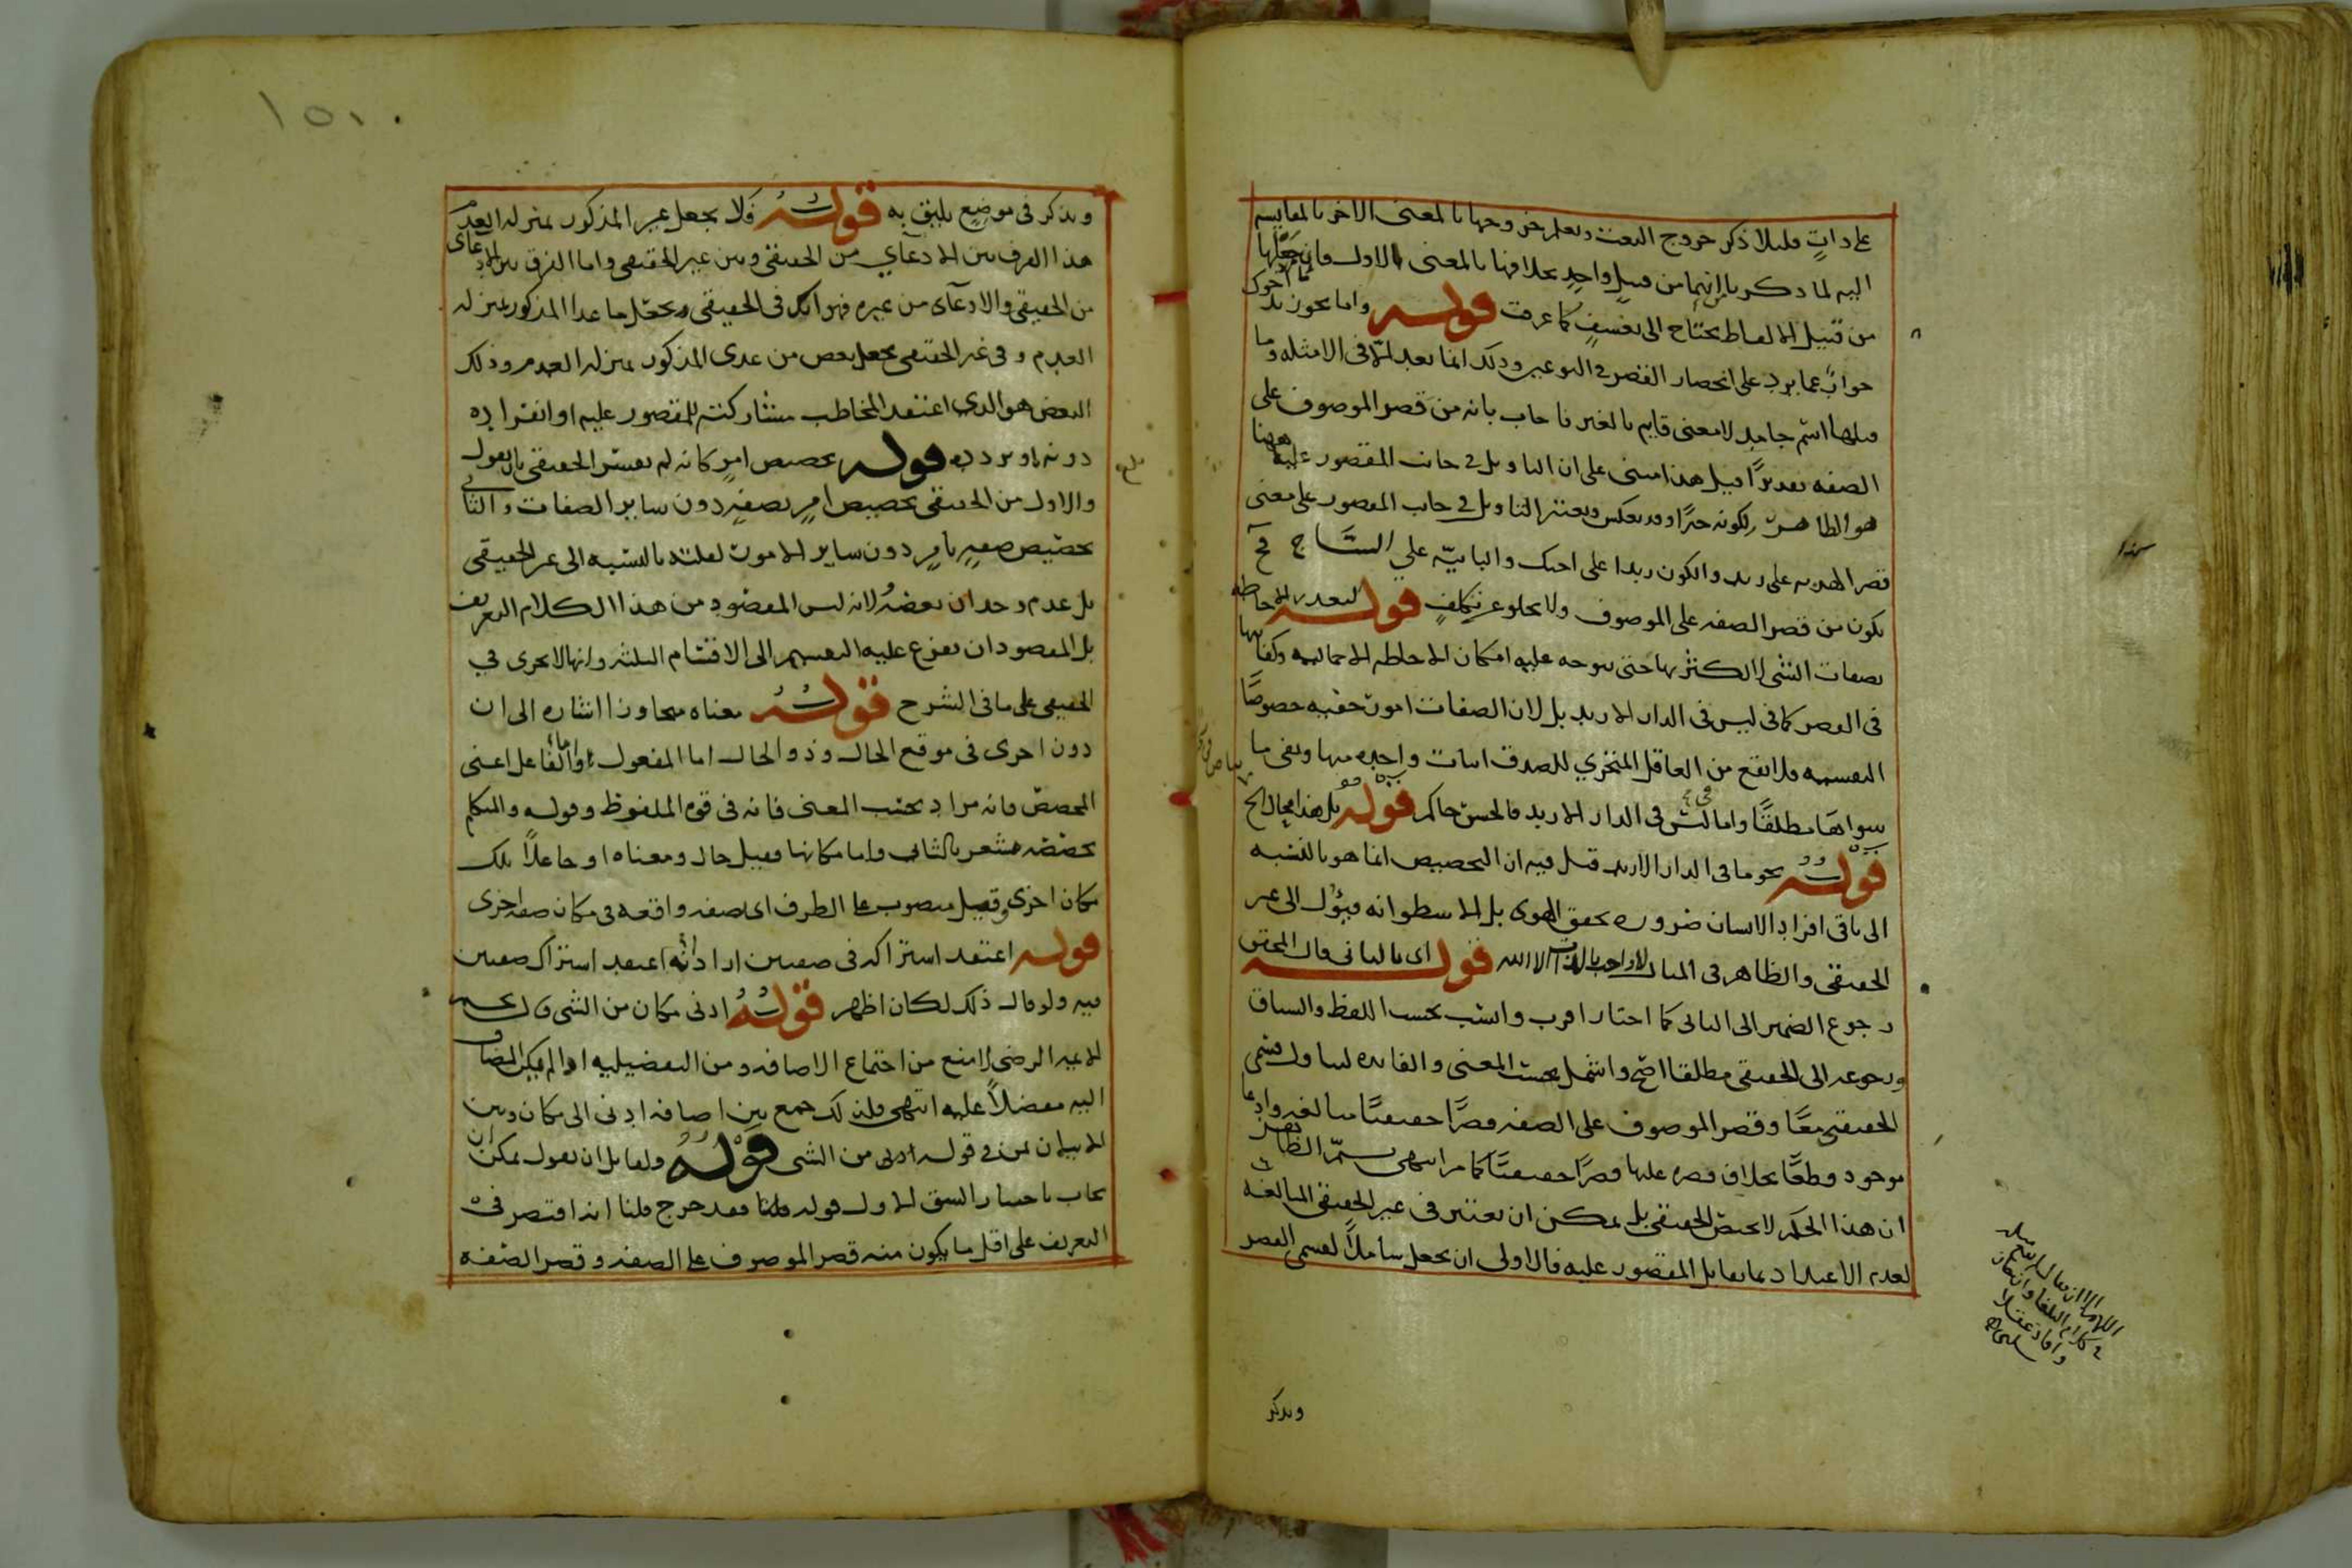 على ذات فليلا ذكر خروج النعت ويعلم خروجها بالمعنى الاخر بالمقايسة
اليه لما ذكر بانهما من قبيل واحد بخلافها بالمعنى الاول فان جعلها
من قبيل الالفاظ يحتاج الى تعسف كما عرفت قوله واما نحو زيد اخوك
جواب عما يرد على انحصار القصر في النوعين وذلك انما بعد الا في الامثلة وما
قبلها اسم جامد لا معنى قايم بالغير فاجاب بانه من قصر الموصوف على
الصفة تقديرا قيل هذا مبنى على ان التاويل في جانب المقصور عليه ههنا
هو الظاهر لكونه خبرا وقد يعكس ويعتبر التاويل في جانب المقصور على معنى
قصر على زيد والكون زيدا على اخيك والبابية على الساج فح
يكون من قصر الصفة على الموصوف ولا يخلو عن تكلف قوله لتعذر الاحاطة
بصفات الشى لا لكثرتها حتى يتوجه عليه امكان الاحاطة الاجمالية وكفايتها
فى القصر كما فى ليس فى الدار الا زيد بل لان الصفات امور خفية خصوصا
النفسية فلا يقع من العاقل المتحري للصدق اثبات واحدة منها ونفى ما
سواها مطلقا واما ليس فى الدار الا زيد فالحس حاكم قوله بل هذا محال الخ
قوله نحو ما فى الدار الا زيد قيل فيه ان التخصيص انما هو بالنسبه
الى باقى افراد الانسان ضرورة تحقق الهوى بل الاسطوانه فيؤل الى غير
الحقيقى والظاهر فى المثال لا واجب بالذات الا الله قوله اى بالثانى قال المحقق
رجوع الضمير الى الثانى كما اختار اقرب وانسب بحسب اللفظ والسياق
ورجوعه الى الحقيقى مطلقا اصح واشمل بحسب المعنى والفايده لتناول قسمى
الحقيقى معا وقصر الموصوف على الصفة قصرا حقيقيا مبالغة وادعا
موجود قطعا بخلاف قصره عليها قصرا حقيقيا كما مر انتهى ثم الظاهر
ان هذا الحكم لا يختص الحقيقى بل يمكن ان يعتبر فى غير الحقيقى المبالغة
لعدم الاعتداد بما يقابل المقصور عليه فالاولى ان يجعل شاملا لقسمى القصر
ويذكر
١٥١
ويذكر فى موضع يليق به قوله فلا يجعل غير المذكور بمنزلة العدم
هذا الفرق بين الادعآي من الحقيقى وبين غير الحقيقى واما الفرق بين الادعآى
من الحقيقى والادعآى من غيره فهو انك فى الحقيقى تجعل ما عدا المذكور بمنزلة
العدم وفى غير الحقيقى تجعل بعض من عدى المذكور بمنزلة العدم وذلك
البعض هو الذى اعتقد المخاطب مشاركته للمقصور عليه او انفراده
دونه او تردد فيه قوله تخصيص امر كانه لم يفسر الحقيقى بان يقول
والاول من الحقيقى تخصيص امر بصفة دون ساير الصفات والثانى
تخصيص صفة بامر دون ساير الامور لقلته بالنسبه الى غير الحقيقى
بل عدم وجدان بعضه لانه ليس المقصود من هذا الكلام التعريف
بل المقصود ان يفرع عليه التقسيم الى الاقسام الثلثة وانها لا تجرى في
الحقيقى على ما فى الشرح قوله معناه متجاوزا اشاره الى ان
دون اخرى فى موقع الحال وذو الحال اما المفعول واما الفاعل اعنى
المخصص فانه مراد بحسب المعنى فانه فى قوة الملفوظ وقوله والمتكلم
تخصصه مشعر بالثانى واما مكانها فقيل حال ومعناه او جاعلا تلك
مكان اخرى وقيل منصوب على الظرف اى صفة واقعة فى مكان صفة اخرى
قوله اعتقد اشتراكه فى صفتين اراد انه اعتقد اشتراك صفتين
فيه ولو قال ذلك لكان اظهر قوله ادنى مكان من الشى قال نجم
الايمة الرضى لا منع من اجتماع الاضافة ومن التفضيلية اذا لم يكن المضاف
اليه مفضلا عليه انتهى فلذلك جمع بين اضافة ادنى الى مكان وبين
الاتيان بمن في قوله ادنى من الشى قوله ولقايل ان يقول يمكن ان
يجاب باختيار الشق الاول قوله قلنا فقد خرج قلنا انه اقتصر فى
التعريف على اقل ما يكون منه قصر الموصوف على الصفة وقصر الصفة